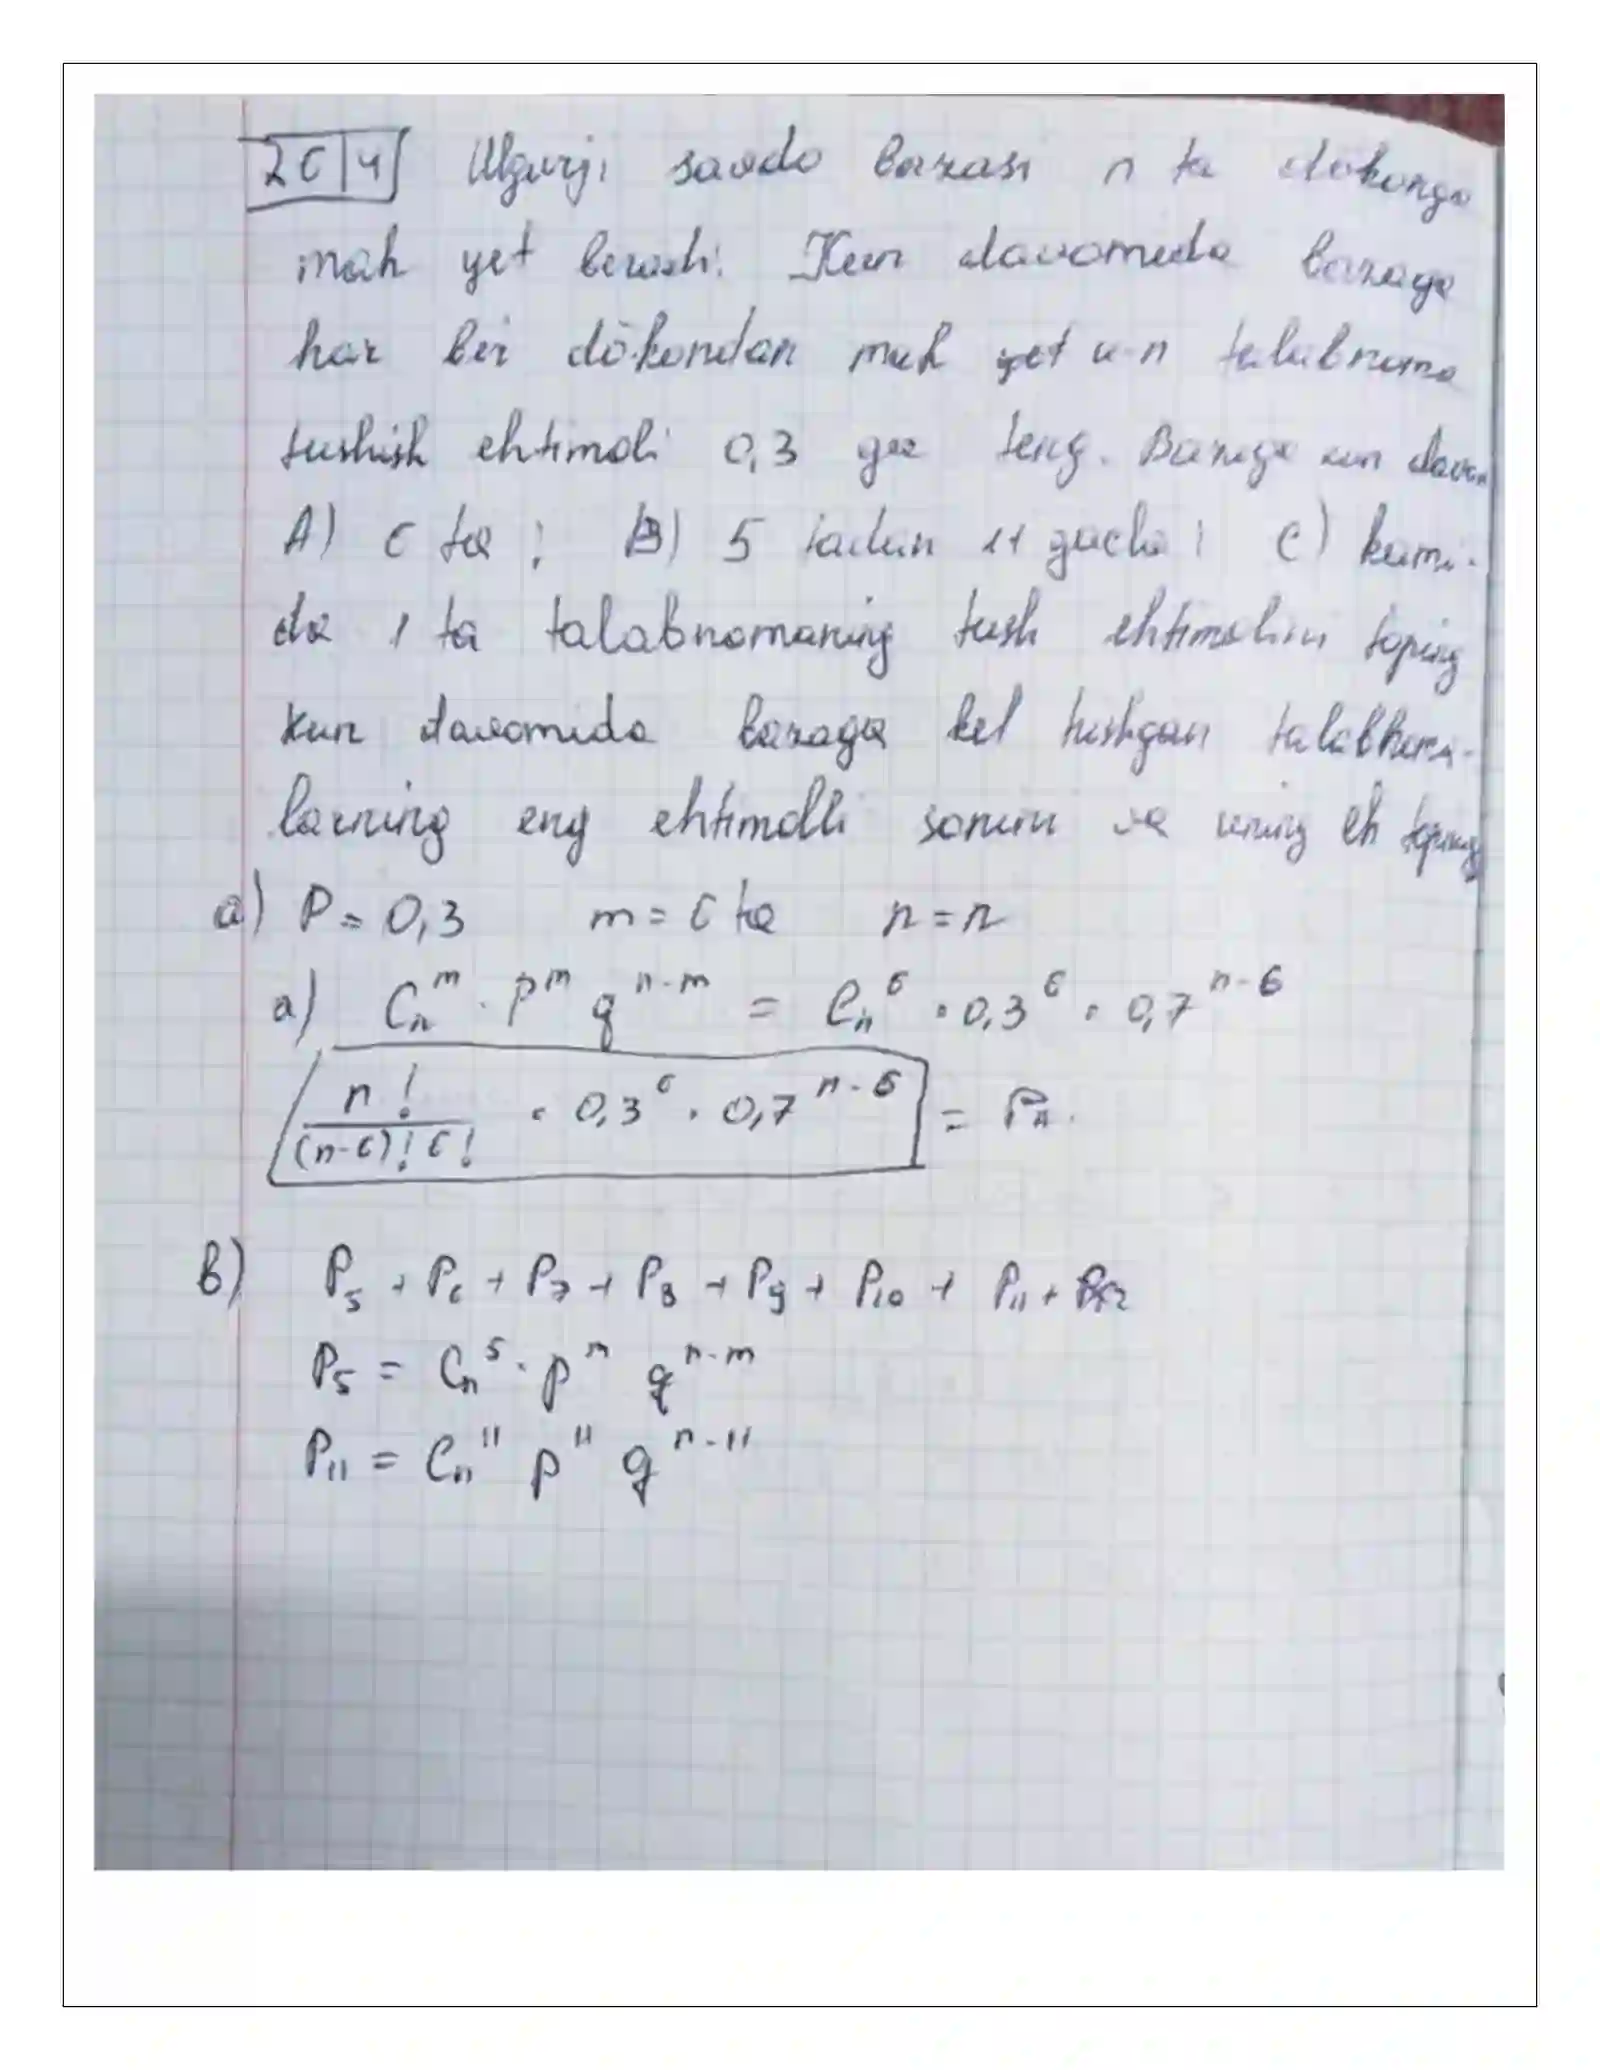 26/4 Ulgurji savdo bazasi n ta dōkonga
mah yet beradi. Kun davomida bazaga
har bir dōkondan mah yet u-n talabnoma
tushish ehtimoli 0,3 ga teng. Bazaga kun davom
A) 6 ta; B) 5 tadan 11 gacha; C) kami-
da 1 ta talabnomaning tush ehtimolini toping
Kun davomida bazaga kel tushgan
larning eng ehtimolli sonini va uning eh toping
a) P = 0,3 m = 6 ta n = n
a) Cₙᵐ · Pᵐ qⁿ⁻ᵐ = Cₙ⁶ · 0,3⁶ · 0,7ⁿ⁻⁶
n!/(n-6)! 6! · 0,3⁶ · 0,7ⁿ⁻⁶ =
b) P₅ + P₆ + P₇ + P₈ + P₉ + P₁₀ + P₁₁ +
P₅ = Cₙ⁵ · pᵐ qⁿ⁻ᵐ
P₁₁ = Cₙ¹¹ p¹¹ qⁿ⁻¹¹